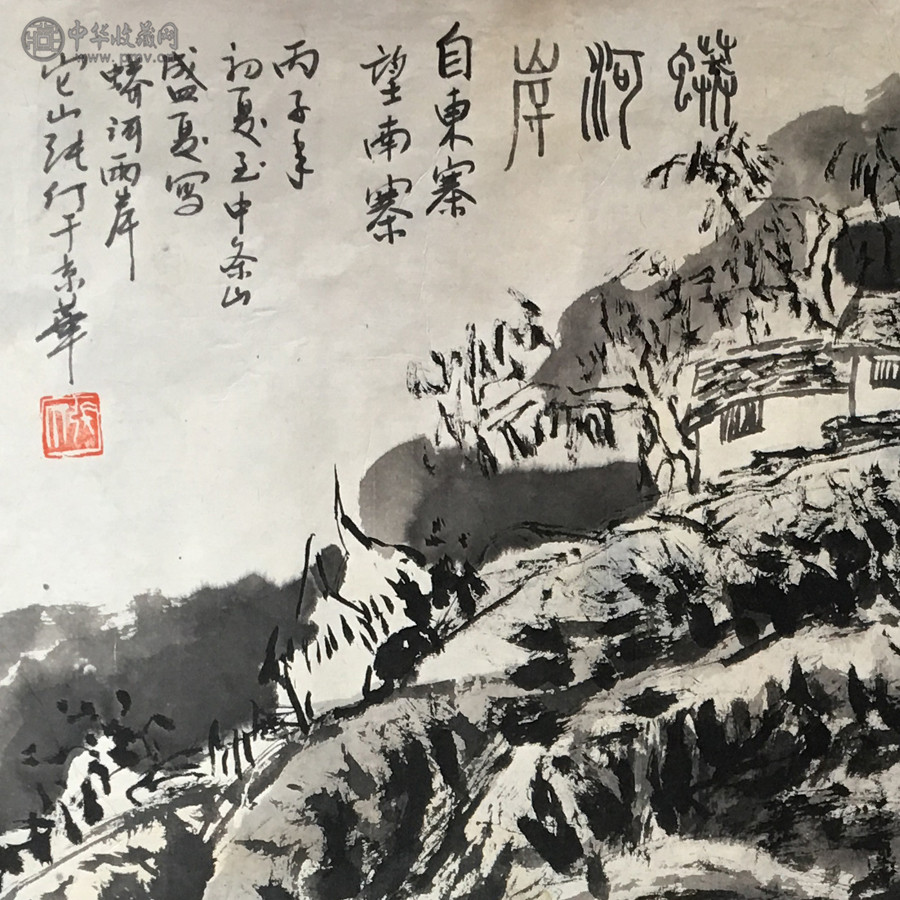 蟒河岸
自東寨
望南寨
丙子年
初夏至中条山
盛夏写
蟒河兩岸
山张仃于京華
张仃
中华收藏网